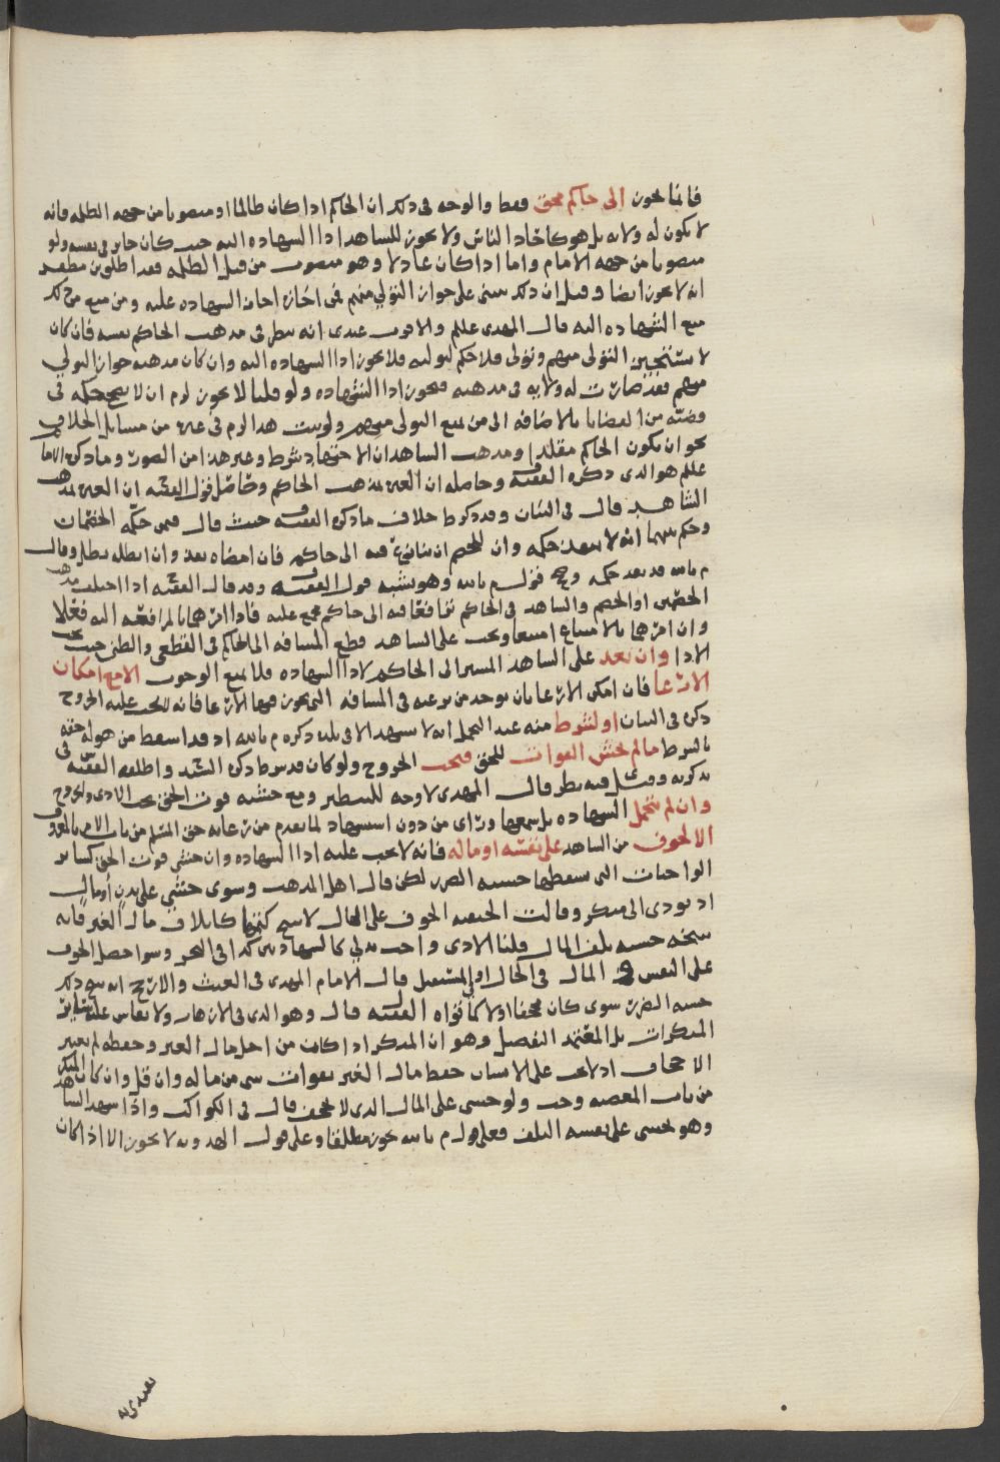 فانما يجوز الى حاكم محق فقط والوجه فى ذلك ان الحاكم اذا كان ظالما او منصوبا من جهه الظلمه فانه
لا يكون له ولايه بل هو كاحاد الناس ولا يجوز للشاهد اداا الشهاده اليه حيث كان جاير فى نفسه ولو
منصوبا من جهه الامام واما اذا كان عادلا وهو منصوب من قبل الظلمه فقد اطلق بن مظفر
انه لا يجوز ايضا وقيل ان ذلك يبنى على جواز التولي منهم فمن اجازه اجاز الشهاده عليه ومن منع من ذلك
منع الشهاده اليه قال المهدى علم والاقرب عندى انه ينظر فى مذهب الحاكم نفسه فان كان
لا يستجيز التولى منهم وتولى فلا حكم لتوليه فلا يجوز اداا الشهاده اليه وان كان مذهبه جواز التولي
منهم فقد صارت له ولايه فى مذهبه فيجوز اداا الشهاده ولو قلنا لا يجوز لزم ان لا يصح حكمه فى
قضيه من القضايا بالاضافه الى من يمنع التولى منهم ولو ثبت هذا لزم فى غيره من مسايل الخلاف
نحو ان يكون الحاكم مقلدا ومذهب الشاهد ان الاجتهاد شرط وغير هذا من الصور وما ذكره الاما
علم هو الذى ذكره الفقيه وحاصله ان العبره بمذهب الحاكم وحاصل قول الفقيه ان العبره بمذهب
الشاهد قال فى البيان وقد ذكر ط خلاف ما ذكره الفقيه حيث قال فيمن حكمه الخصمان
وحكم بينهما انه لا ينفذ حكمه وان للخصم ان ينازع فيه الى حاكم فان امضاه نفذ وان ابطله بطل وقال
م بالله قد نفذ حكمه قول م بالله وهو يشبه قول الفقيه وقد قال الفقيه اذا اختلف مذهب
الخصمين او الخصم والشاهد فى الحاكم ترافعا فيه الى حاكم مجمع عليه فاذا الزمهما بالمرافعه اليه فعلا
وان امرهما بالامتناع امتنعا ويجب على الشاهد قطع المسافه الى الحاكم فى القطعى والظنى حيث يجب
الادا وان بعد على الشاهد المسير الى الحاكم لاداا الشهاده فلا يمنع الوجوب الا مع امكان
الارعا فان امكن الارعا بان يوجد من يرعيه فى المسافه التى يجوز فيها الارعا فانه لا يجب عليه الخروج
ذكره فى البيان او لشرط منه عند التحمل انه لا يشهد الا فى بلده ذكره م بالله اذ قد اسقط من هو له حقه
بالشرط ما لم يخش الفوات للحق فيجب الخروج ولو كان قد شرط ذكره السيد واطلقه الفقيه فى
تذكرته وقيل فيه نظر قال المهدى لا وجه للتنظير ومع خشيه فوت الحق يجب الادى والخروج
وان لم يتحمل الشهاده بل سمعها وراى من دون استشهاد لما تقدم من رعايه حق المسلم من باب الامر بالمعروف
الا لخوف من الشاهد على نفسه او ماله فانه لا يجب عليه اداا الشهاده وان خشى فوت الحق كساير
الواجبات التى يسقطها خشيه الضرر لكن قال اهل المذهب وسوى خشي على بدن او مال
اذ يودى الى منكر وقالت الحنفيه الخوف على المال لا يبيح كتمها كاتلاف مال الغير فانه
يبيحه خشيه تلف المال قلنا الادى واجب كذا فى البحر وسوا حصل الخوف
على النفس المال فى الحال او المستقبل قال الامام المهدى فى الغيث والارجح انه يبيح ذلك
خشيه الضرر سوى كان مجحفا او لا كما نواه الفقيه قال وهو الذى فى الازهار ولا يقاس على
المنكرات بل المعتمد التفصيل وهو ان المنكر اذا كانت من اخذ مال الغير وحفظه لم يعتبر
الاجحاف اذ لا يجب على الانسان حفظ مال الغير بفوات شى من ماله وان قل وان كان المنكر
من باب المعصيه وجب ولو خشى على المال الذى لا يجحف قال فى الكواكب واذا شهد الشاهد
وهو يخشى على نفسه التلف فعلى قول م بالله يجوز مطلقا وعلى قول الهدويه لا يجوز الا اذا كان